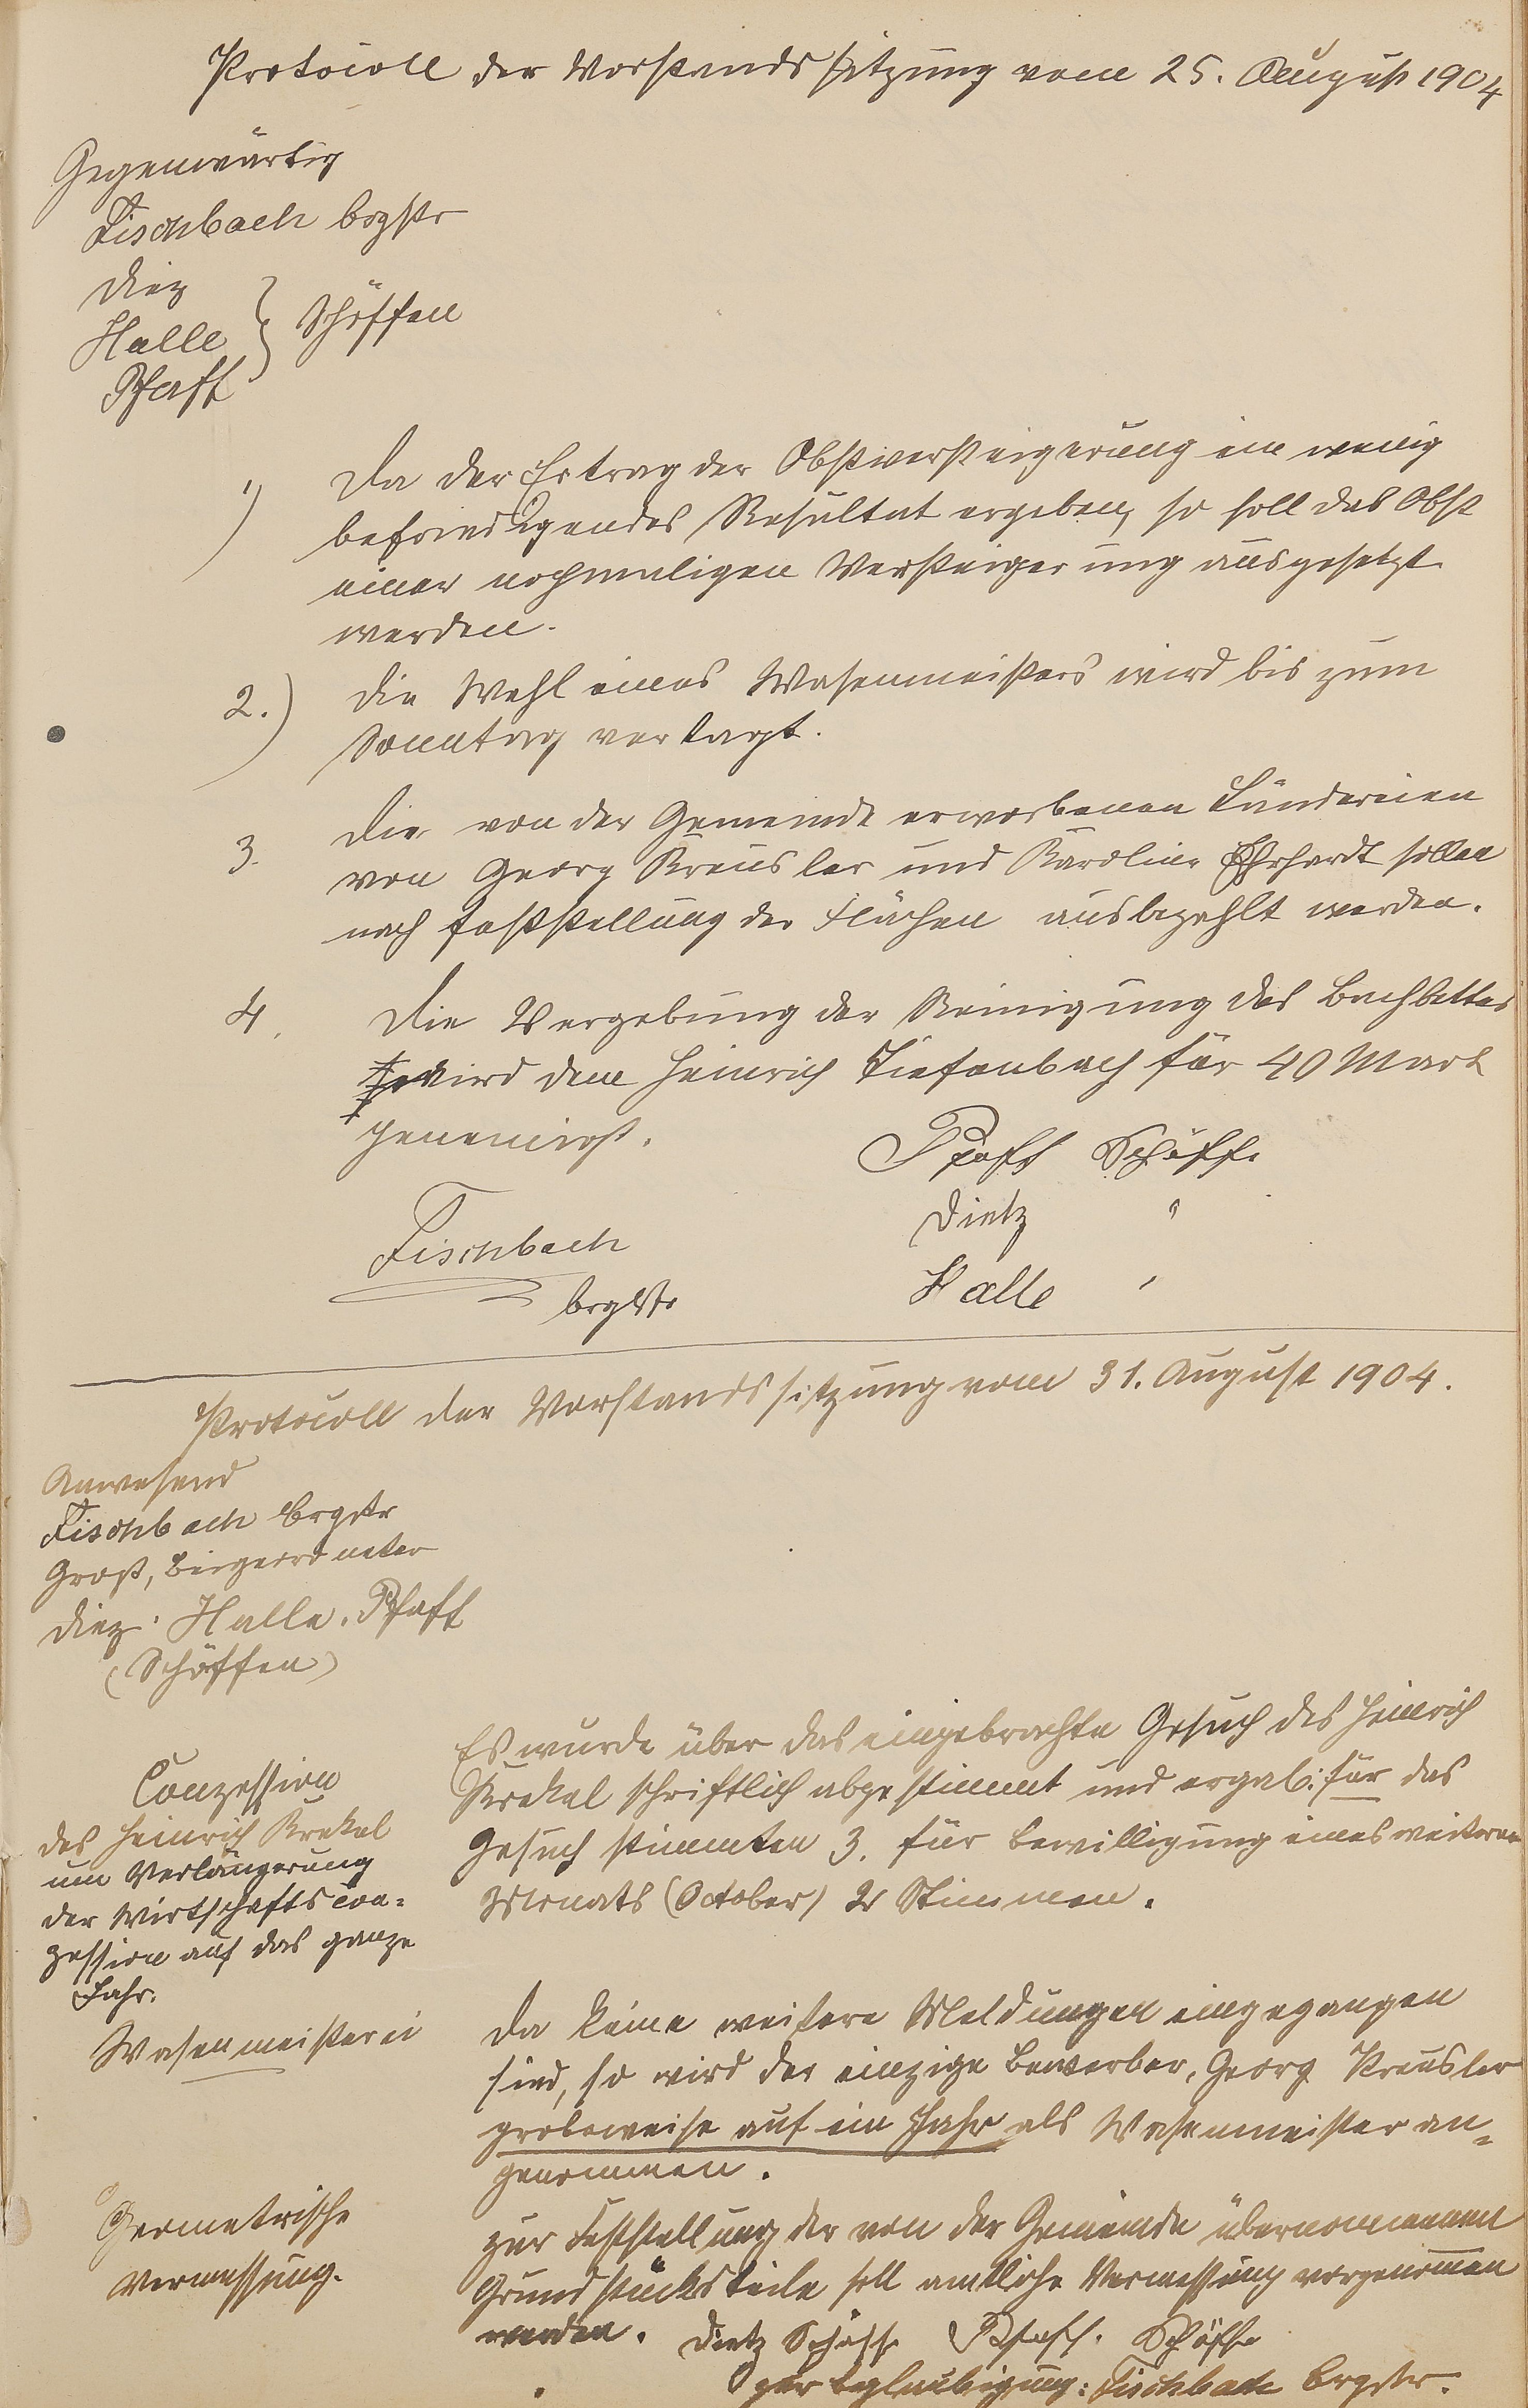 Protocoll der Vorstandssitzung vom 25. August 1904
Gegenwärtig
Fischbach brgstr
Diez
Halle } Schöffen
Pfaff
1) Da der Ertrag der Obstversteigerung ein wenig
befriedigendes Resultat ergeben, so soll das Obst
einer nochmaligen Versteigerung ausgesetzt
werden.
2.) Die Wahl eines Wasenmeisters wird bis zum
Sonntag vertagt.
3. Die von der Gemeinde erworbenen Ländereien
von Georg Kreusler und Karoline Ehrhardt sollen
nach Feststellung der Flächen ausbezahlt werden.
4. Die Vergebung der Reinigung des Bachbettes
wird dem Heinrich Tiefenbach für 40 Mark
genemigt.
Pfaff Schöffe
Dietz "
Fischbach
Halle "
brgstr
Protocoll der Vorstandssitzung vom 31. August 1904.
Anwesend
Fischbach brgstr
Groß, Beigeordneter
Diez. Halle. Pfaff
(Schöffen)
Es wurde über das eingebrachte Gesuch des Heinrich
Krekel schriftlich abgestimmt und ergab: für das
Gesuch stimmten 3. für Bewilligung eines weiteren
Monats (October) 2 Stimmen.
Conzession
des Heinrich Krekel
um Verlängerung
der Wirtschaftscon-
zession auf das ganze
Jahr.
Wasenmeisterei
Da keine weitere Meldungen eingegangen
sind, so wird der einzige Bewerber, Georg Kreusler
probeweise auf ein Jahr als Wasenmeister an-
genommen.
Geometrische
Vermessung.
zur Feststellung der von der Gemeinde übernommenen
Grundstücksteile soll amtliche Vermessung vorgenommen
werden. Dietz Schöffe Pfaff. Schöffe
zur Beglaubigung: Fischbach brgstr.